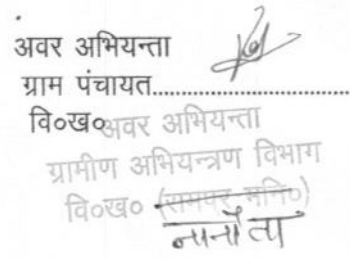 अवर अभियन्ता
ग्राम पंचायत..............................
वि०ख०अवर अभियन्ता
ग्रामीण अभियन्त्रण विभाग
वि०ख० (रामपुर मनि०)
नानौता